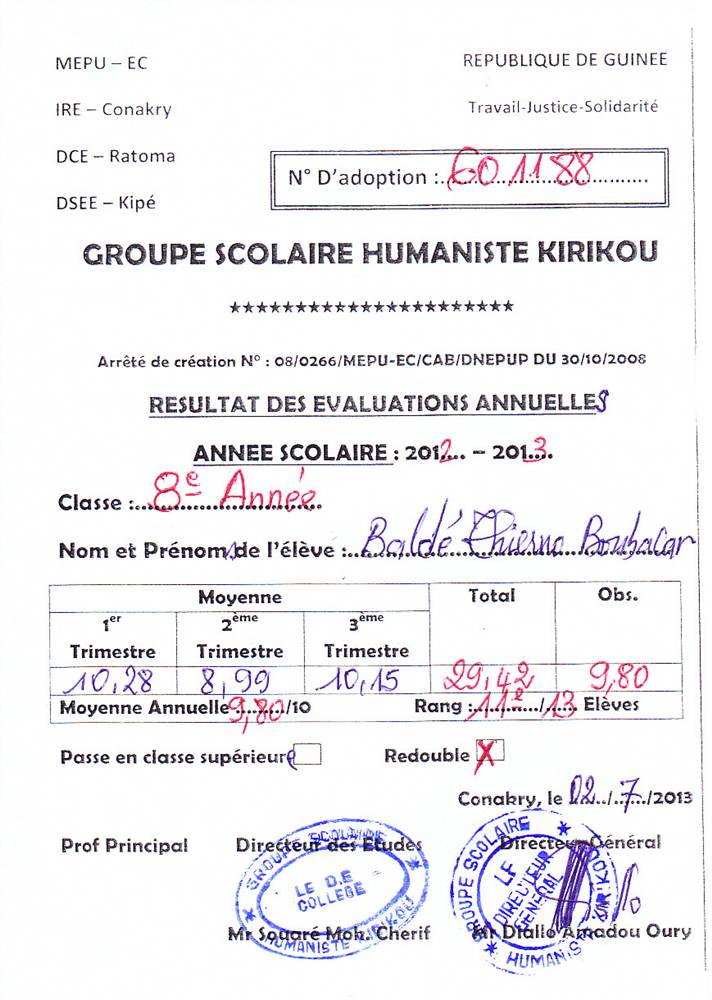 MEPU – EC
REPUBLIQUE DE GUINEE
IRE – Conakry
Travail-Justice-Solidarité
DCE – Ratoma
N° D’adoption :..601188..........
DSEE – Kipé
GROUPE SCOLAIRE HUMANISTE KIRIKOU
**********************
Arrêté de création N° : 08/0266/MEPU-EC/CAB/DNEPUP DU 30/10/2008
RESULTAT DES EVALUATIONS ANNUELLES
ANNEE SCOLAIRE : 2012... – 2013...
Classe :..8e Année
Nom et Prénoms de l’élève :...Baldé Thierno Boubacar
Moyenne Total Obs.
1er 2ème 3ème
Trimestre Trimestre Trimestre
10,28 8,99 10,15 29,42 9,80
Moyenne Annuelle 9,80/10 Rang :.11e../.13 Elèves
Passe en classe supérieure Redouble X
Conakry, le 02../..7../2013
Prof Principal Directeur des Etudes Directeur Général
GROUPE SCOLAIRE
LE D.E
COLLEGE
HUMANISTE KIRIKOU
GROUPE SCOLAIRE
LE
DIRECTEUR
GENERAL
HUMANISTE KIRIKOU
Mr Souaré Moh. Cherif Mr Diallo Amadou Oury